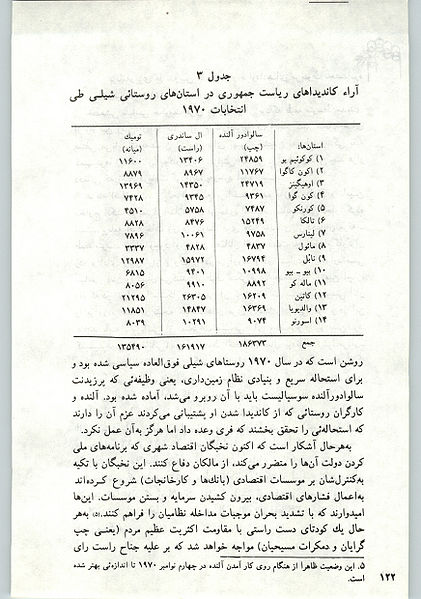 جدول ۳
آراء کاندیداهای ریاست جمهوری در استان‌های روستائی شیلی طی
انتخابات ۱۹۷۰
استان‌ها: سالوادور آلنده (چپ) ال ساندری (راست) تومیك (میانه)
۱) کوکوئیم بو ۲۴۸۵۹ ۱۳۴۰۶ ۱۱۶۰۰
۲) اکون کاگوا ۱۱۷۶۷ ۸۹۶۷ ۸۸۷۹
۳) اوهیگینز ۲۴۷۱۹ ۱۴۳۵۰ ۱۳۹۶۹
۴) کون گوا ۹۳۶۱ ۹۳۴۵ ۷۴۲۸
۵) کورنکو ۷۴۸۷ ۵۷۵۸ ۴۵۱۰
۶) تالکا ۱۵۲۴۹ ۸۴۷۶ ۸۸۲۸
۷) لینارس ۹۷۵۸ ۱۰۰۶۱ ۷۸۹۶
۸) مائول ۴۸۳۷ ۴۸۲۸ ۳۳۳۷
۹) نابل ۱۶۷۹۴ ۱۵۹۷۲ ۱۲۹۸۷
۱۰) بیو ـ بیو ۱۰۹۹۸ ۹۴۰۱ ۶۸۱۵
۱۱) ماله کو ۸۸۹۲ ۹۹۱۰ ۸۰۵۶
۱۲) کاتین ۱۶۲۰۹ ۲۶۳۰۵ ۲۱۲۹۵
۱۳) والدیویا ۱۶۳۶۹ ۱۴۸۴۷ ۱۱۸۵۱
۱۴) اسورنو ۹۰۷۴ ۱۰۲۹۱ ۸۰۳۹
جمع ۱۸۶۳۷۳ ۱۶۱۹۱۷ ۱۳۵۴۹۰
روشن است که در سال ۱۹۷۰ روستاهای شیلی فوق‌العاده سیاسی شده بود و
برای استحاله سریع و بنیادی نظام زمین‌داری، یعنی وظیفه‌ئی که پرزیدنت
سالوادورآلنده سوسیالیست باید با آن روبرو می‌شد، آماده شده بود. آلنده و
کارگران روستائی که از کاندیدا شدن او پشتیبانی می‌کردند عزم آن را دارند
که استحاله‌ئی را تحقق بخشند که فری وعده داد اما هرگز به‌آن عمل نکرد.
به‌هرحال آشکار است که اکنون نخبگان اقتصاد شهری که برنامه‌های ملی
کردن دولت آن‌ها را متضرر می‌کند، از مالکان دفاع کنند. این نخبگان با تکیه
به‌کنترل‌شان بر موسسات اقتصادی (بانك‌ها و کارخانجات) شروع کرده‌اند
به‌اعمال فشارهای اقتصادی، بیرون کشیدن سرمایه و بستن موسسات. این‌ها
امیدوارند که با تشدید بحران موجبات مداخله نظامیان را فراهم کنند.(۵) به‌هر
حال یك کودتای دست راستی با مقاومت اکثریت عظیم مردم (یعنی چپ
گرایان و دمکرات مسیحیان) مواجه خواهد شد که بر علیه جناح راست رای
۵. این وضعیت ظاهرا از هنگام روی کار آمدن آلنده در چهارم نوامبر ۱۹۷۰ تا اندازه‌ئی بهتر شده
است.
۱۲۲